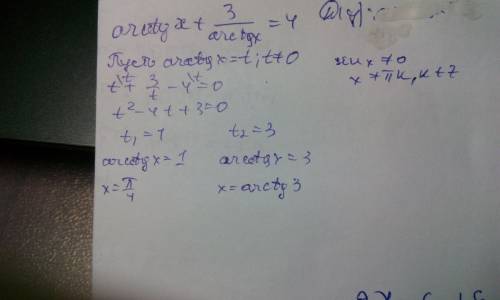 arctg x + 3/arctgx = 4
Пусть arctg x = t, t ≠ 0
sin x ≠ 0
x ≠ πk, k ∈ Z
t\t + 3/t - 4\t = 0
t² - 4t + 3 = 0
t₁ = 1 t₂ = 3
arctg x = 1 arctg x = 3
x = π/4 x = arctg 3